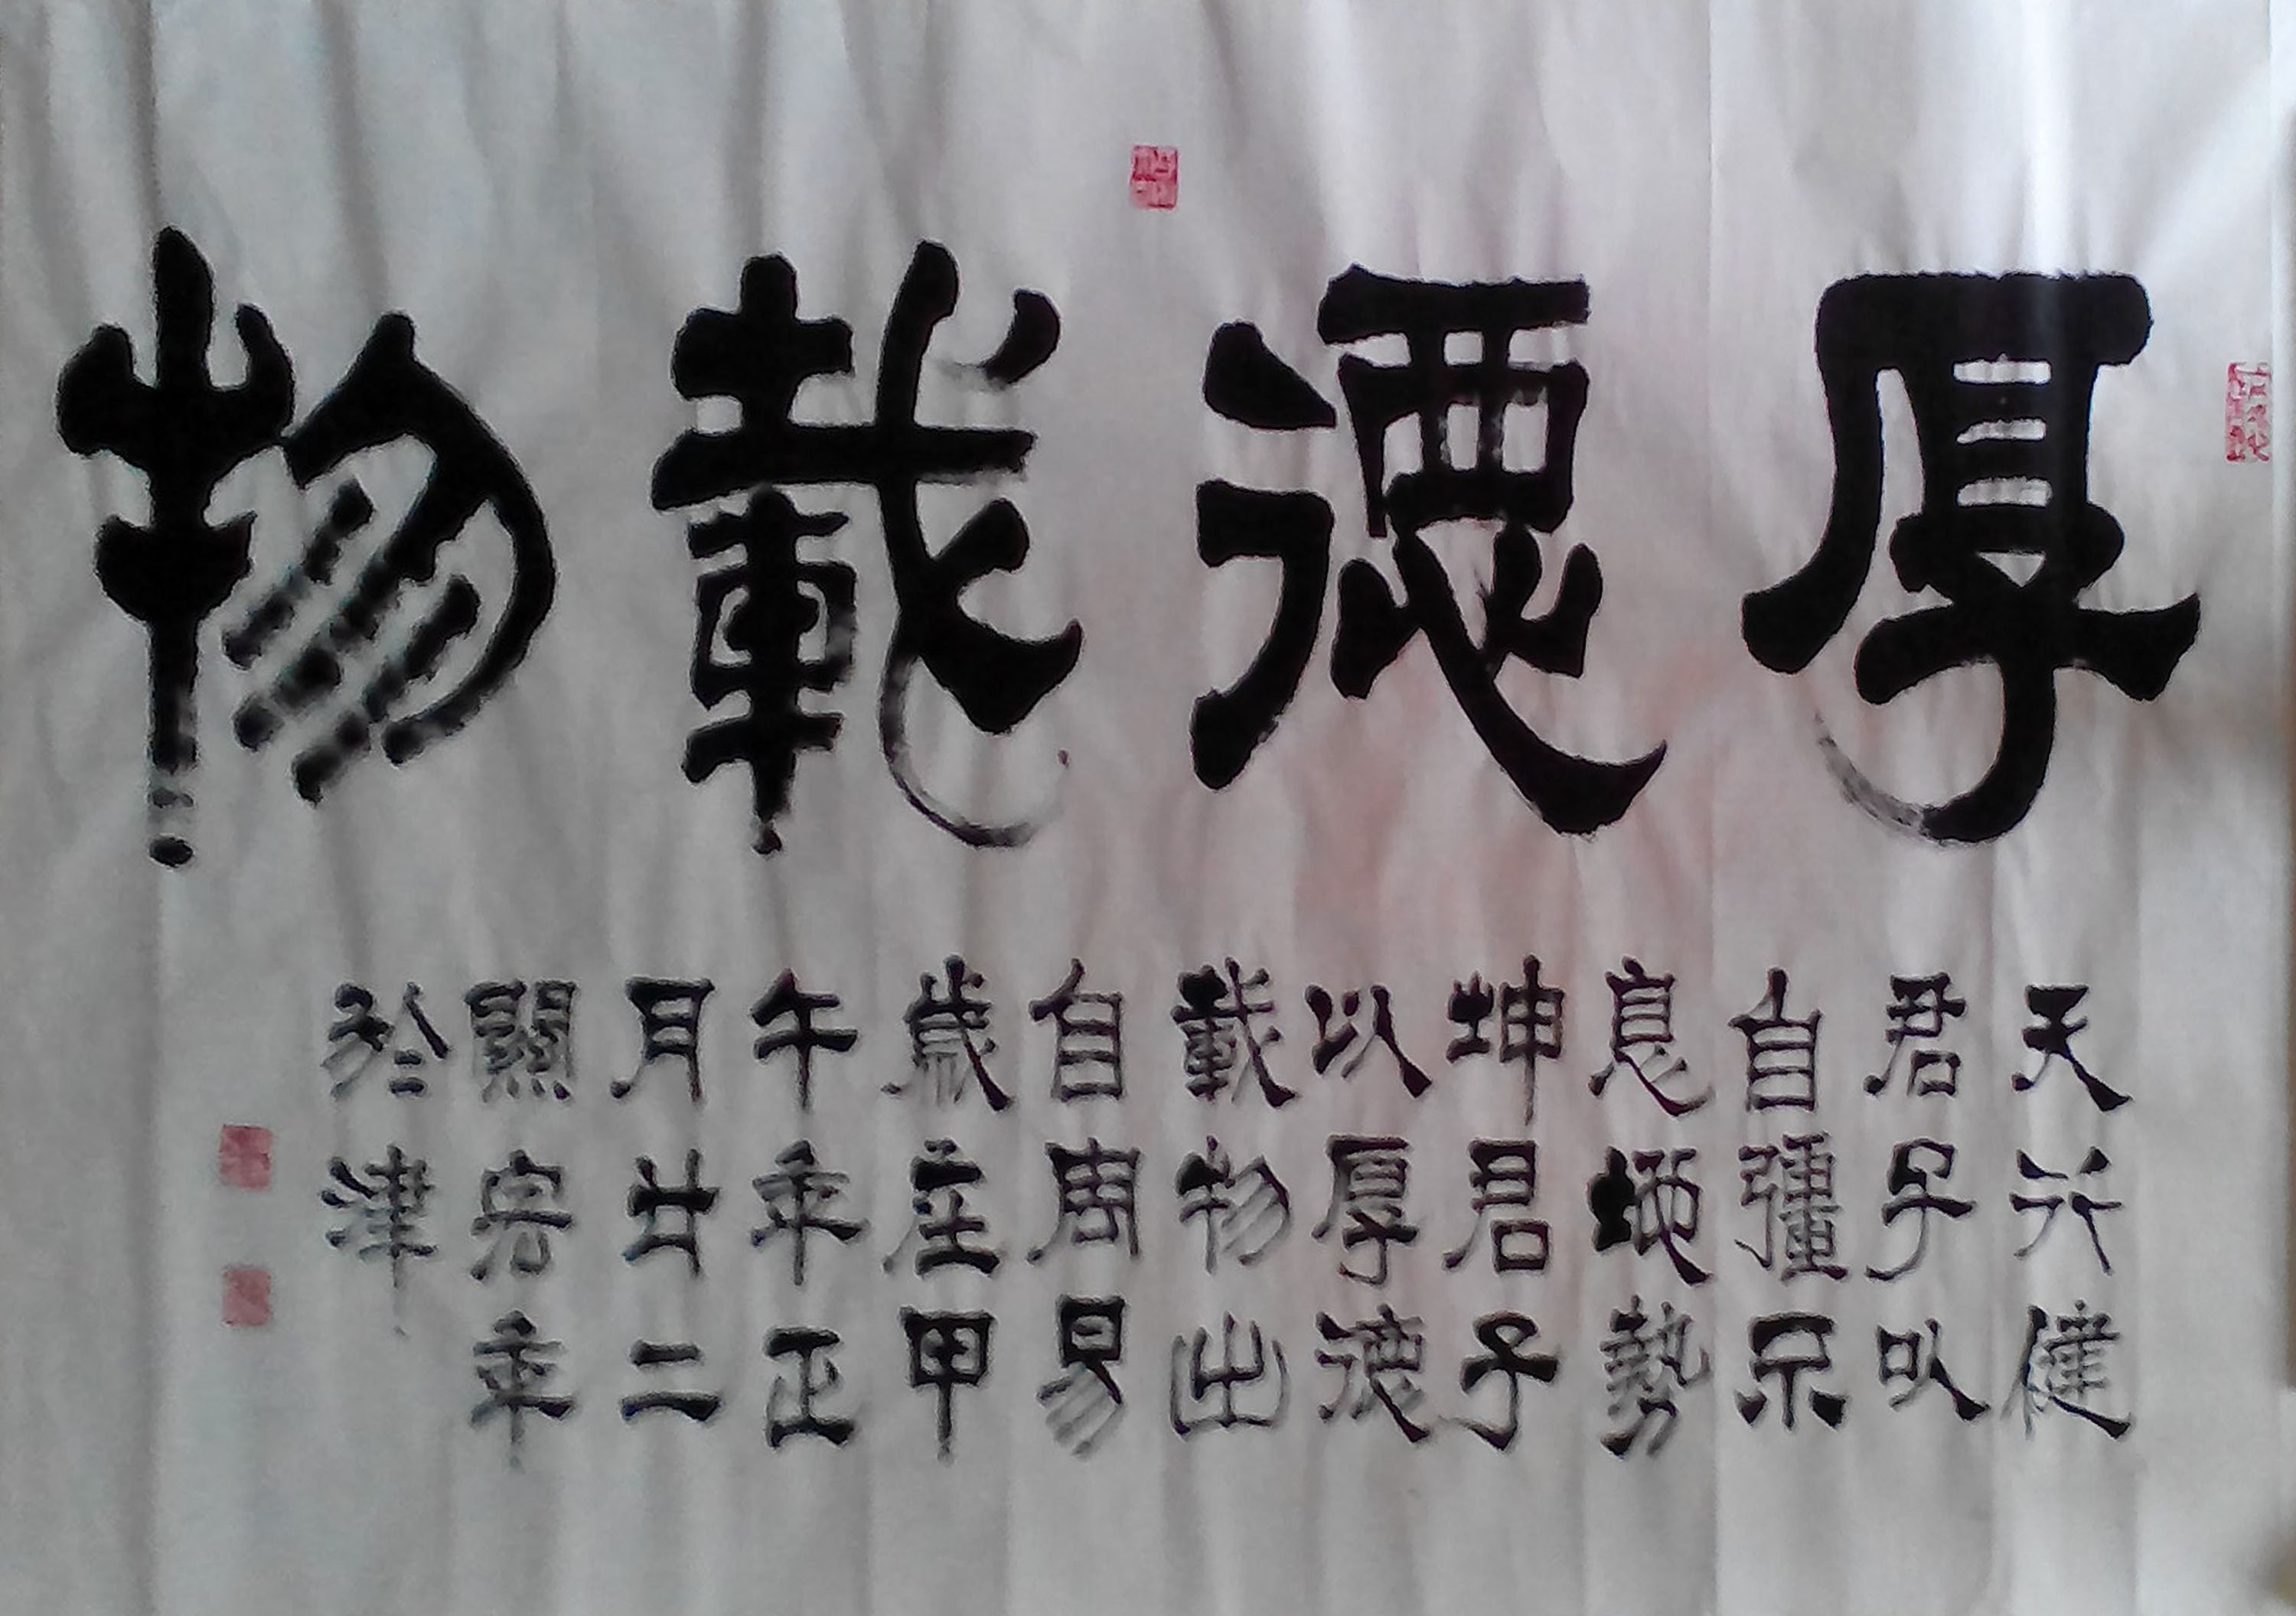 厚德載物
天行健
君子以
自彊不
息地勢
坤君子
以厚德
載物出
自周易
歲在甲
午年正
月廿二
顯宏年
於津